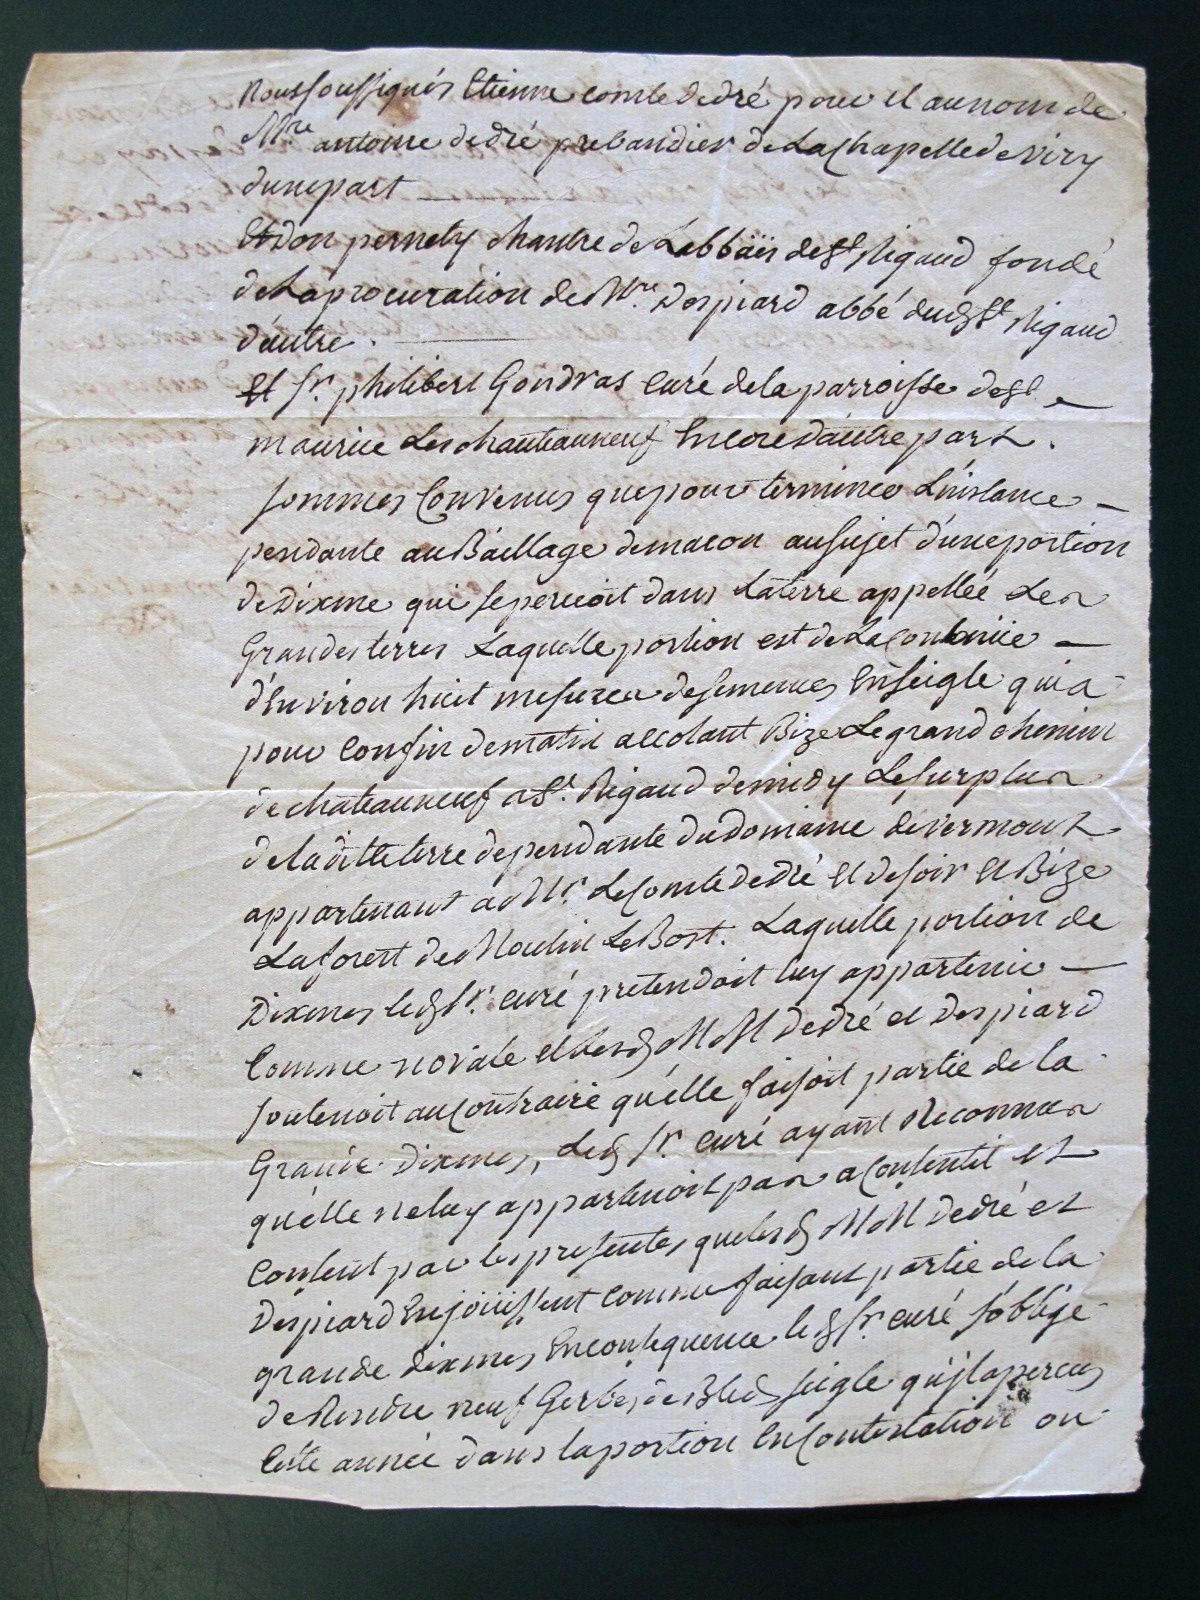 Nous soussignés Etienne comte dedré pour et au nom de
Mre antoine dedré prebandier de La chapelle de viry
dune part
Et don pernety chantre de Labbaïe de St Rigaud fondé
de La procuration de Mre Despiard abbé dud St Rigaud
d'autre .
et Sr. philibert Gondras Curé de la parroisse de St
maurice Les chauteauneuf Encore d'autre part .
sommes Convenus que pour terminer L'instance
pendante au Baillage de macon au sujet d'une portion
de Dixme qui se percoit dans La terre appellée Les
Grandes terres Laquelle portion est de La Contenüe
d'Environ huit mesures de semences En seigle qui a
pour Confin de matin a Bize Le grand chemin
de chateauneuf a St. Rigaud de midy Le surplus
de la ditte terre dependante du domaine de vermont
appartenant a Mr. Le Comte de dré Et de soir Et Bize
La forest de Moulin Le Bost. Laquelle portion de
Dixmes led Sr. Curé pretendoit luy appartenir
Comme novale et lesd MM dedré et Despiard
soutenoit au Contraire qu'elle faisoit partie de la
Grande Dixmes, Led Sr. Curé ayant Reconnu
qu'elle ne luy appartenoit pas a Consentit et
Consent par les presentes que lesd MM dedré et
Despiard En jouissent comme faisant partie de la
grande dixmes En consequence led Sr. Curé s'oblige
de Rendre neuf Gerbes de Bled seigle qu'il a percus
Cette année dans la portion En Contestation ou